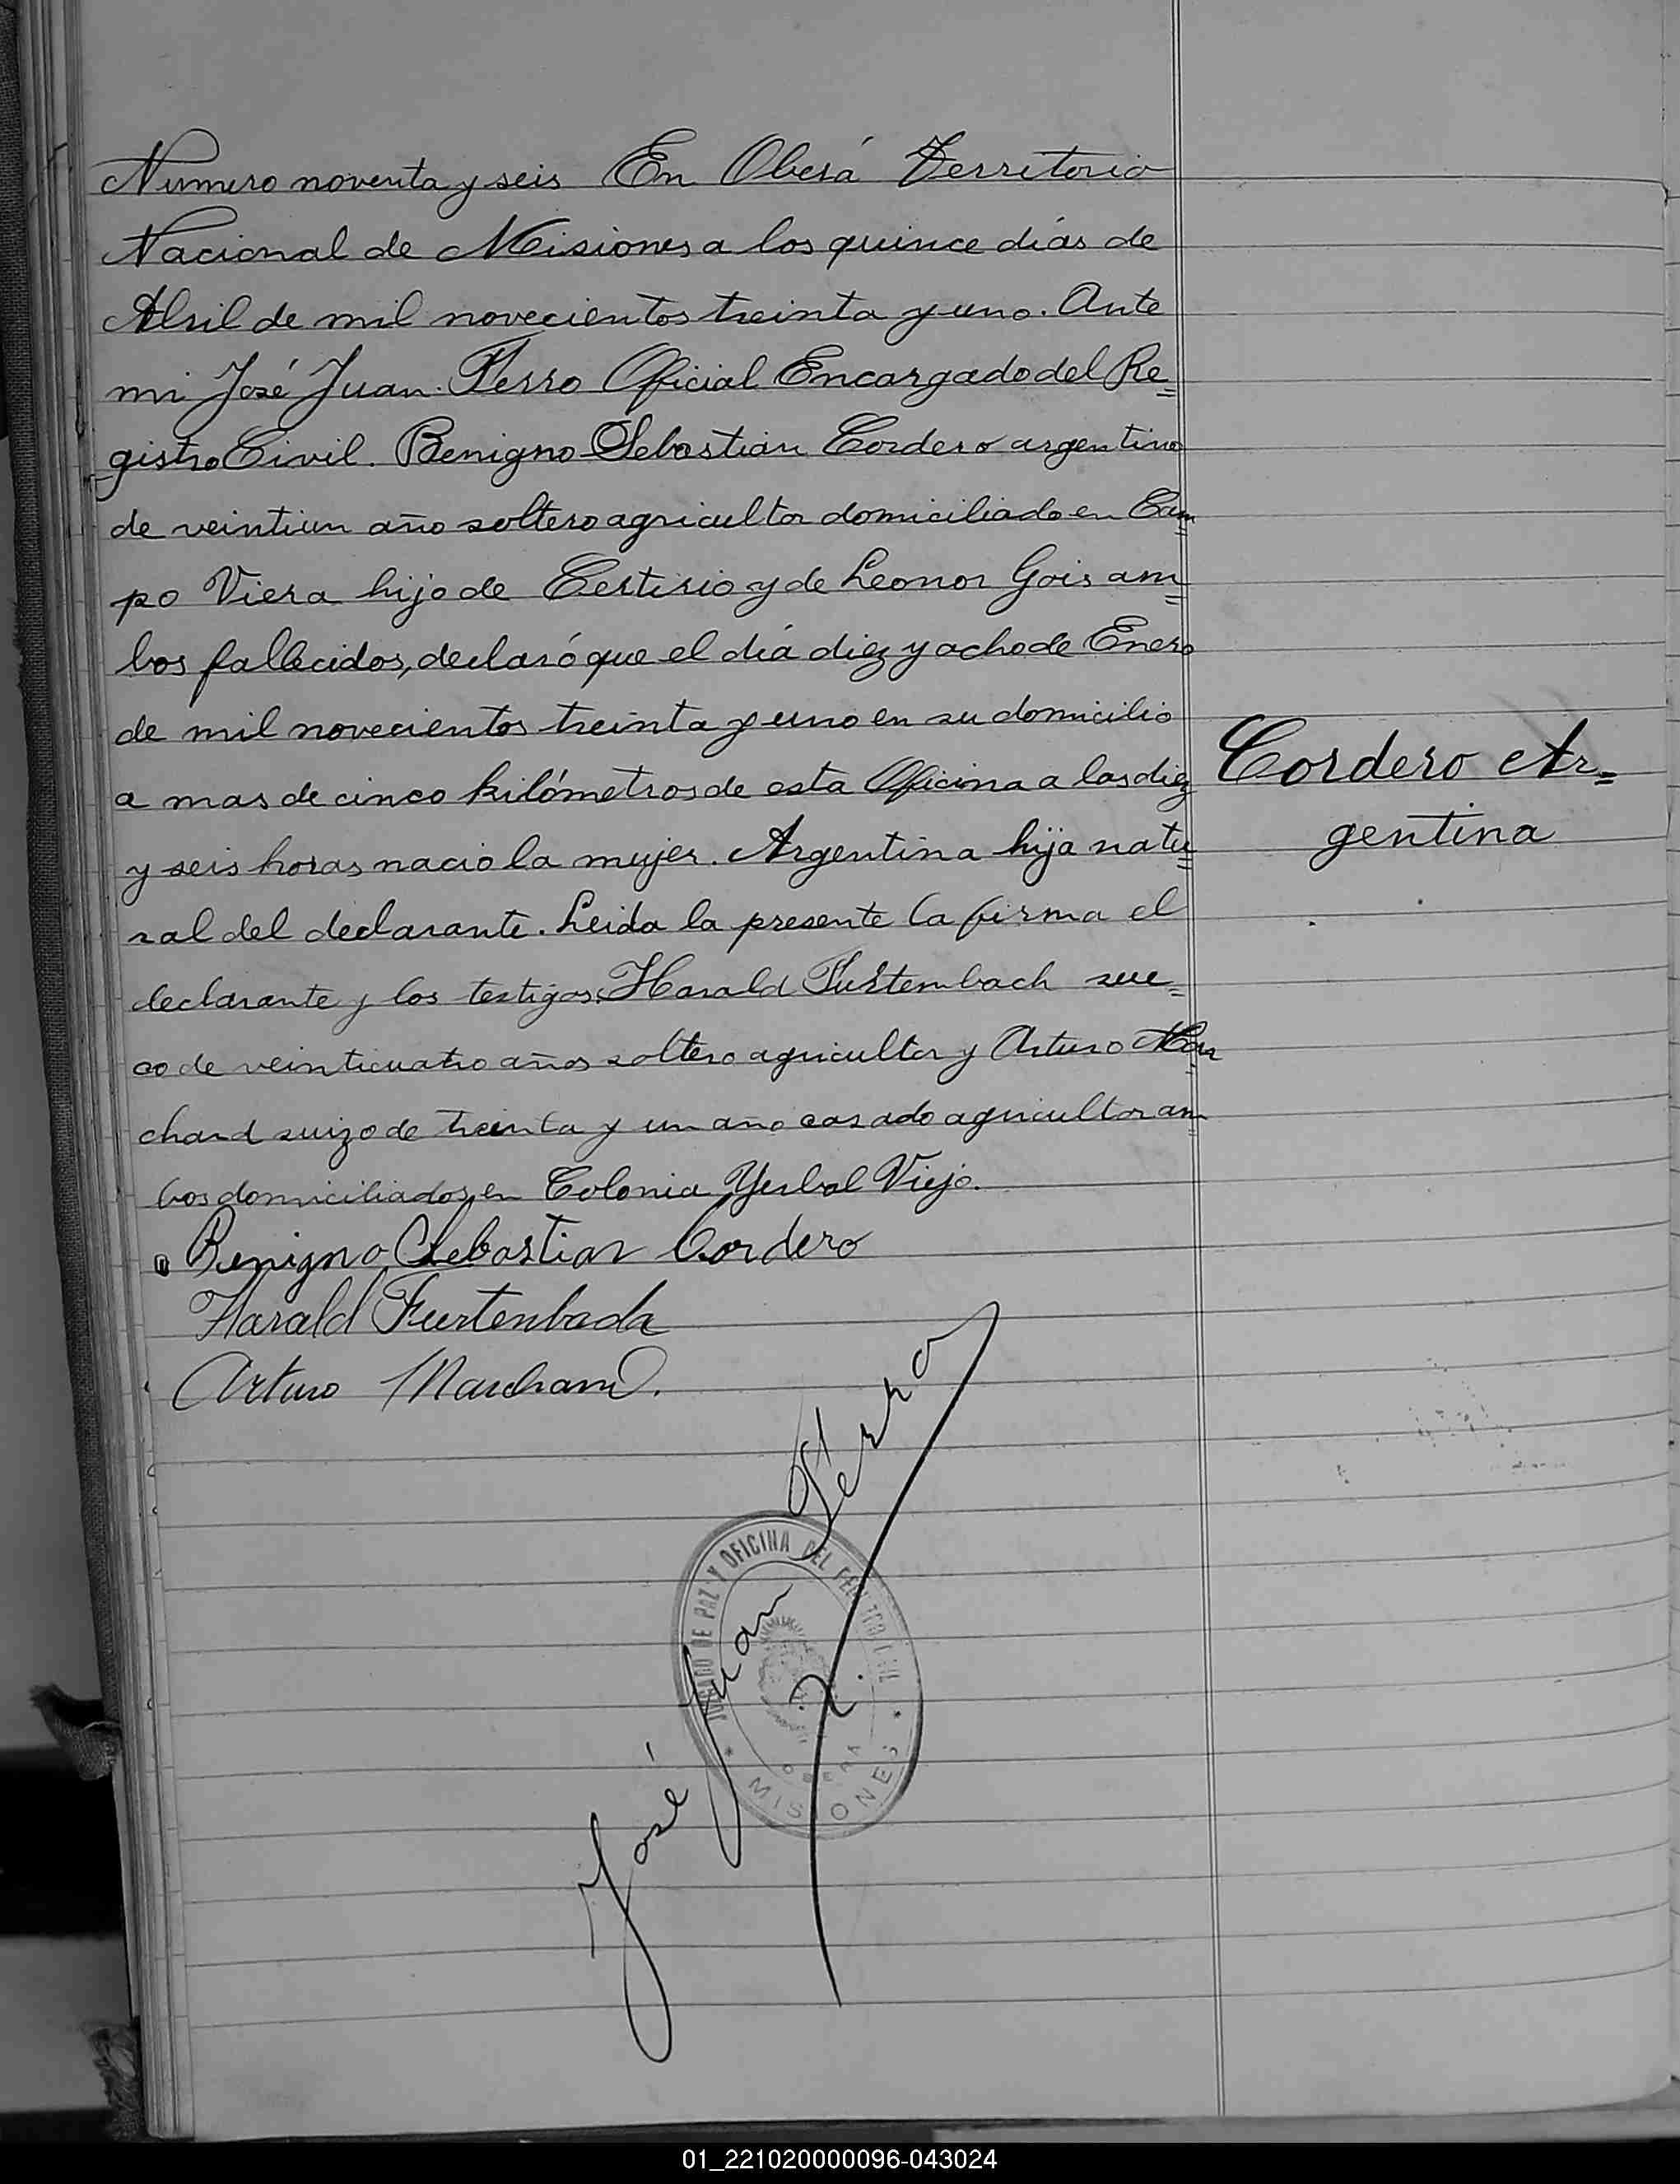 Numero noventa y seis En Oberá Territorio
Nacional de Misiones a los quince días de
Abril de mil novecientos treinta y uno. Ante
mi José Juan Ferro Oficial Encargado del Re=
gistro Civil. Benigno Sebastian Cordero argentino
de veintiun año soltero agricultor domiciliado en Cam=
po Viera hijo de y de Leonor Gois am=
bos fallecidos, declaró que el día diez y ocho de Enero
de mil novecientos treinta y uno en su domicilio
a mas de cinco kilómetros de esta Oficina a las diez
y seis horas nacio la mujer. Argentina hija natu=
ral del declarante. Leida la presente la firma el
declarante y los testigos Harald Furtembach sue=
co de veinticuatro años soltero agricultor y Arturo Mar=
chand suizo de treinta y un año casado agricultor am=
bos domiciliados en Colonia Yerbal Viejo.
Cordero Ar=
gentina
Benigno Sebastian Cordero
Harald Furtenbach
Arturo Marchand.
José Juan Ferro
JUZGADO DE PAZ Y OFICINA DEL REGISTRO CIVIL
OBERA
* MISIONES *
01_221020000096-043024